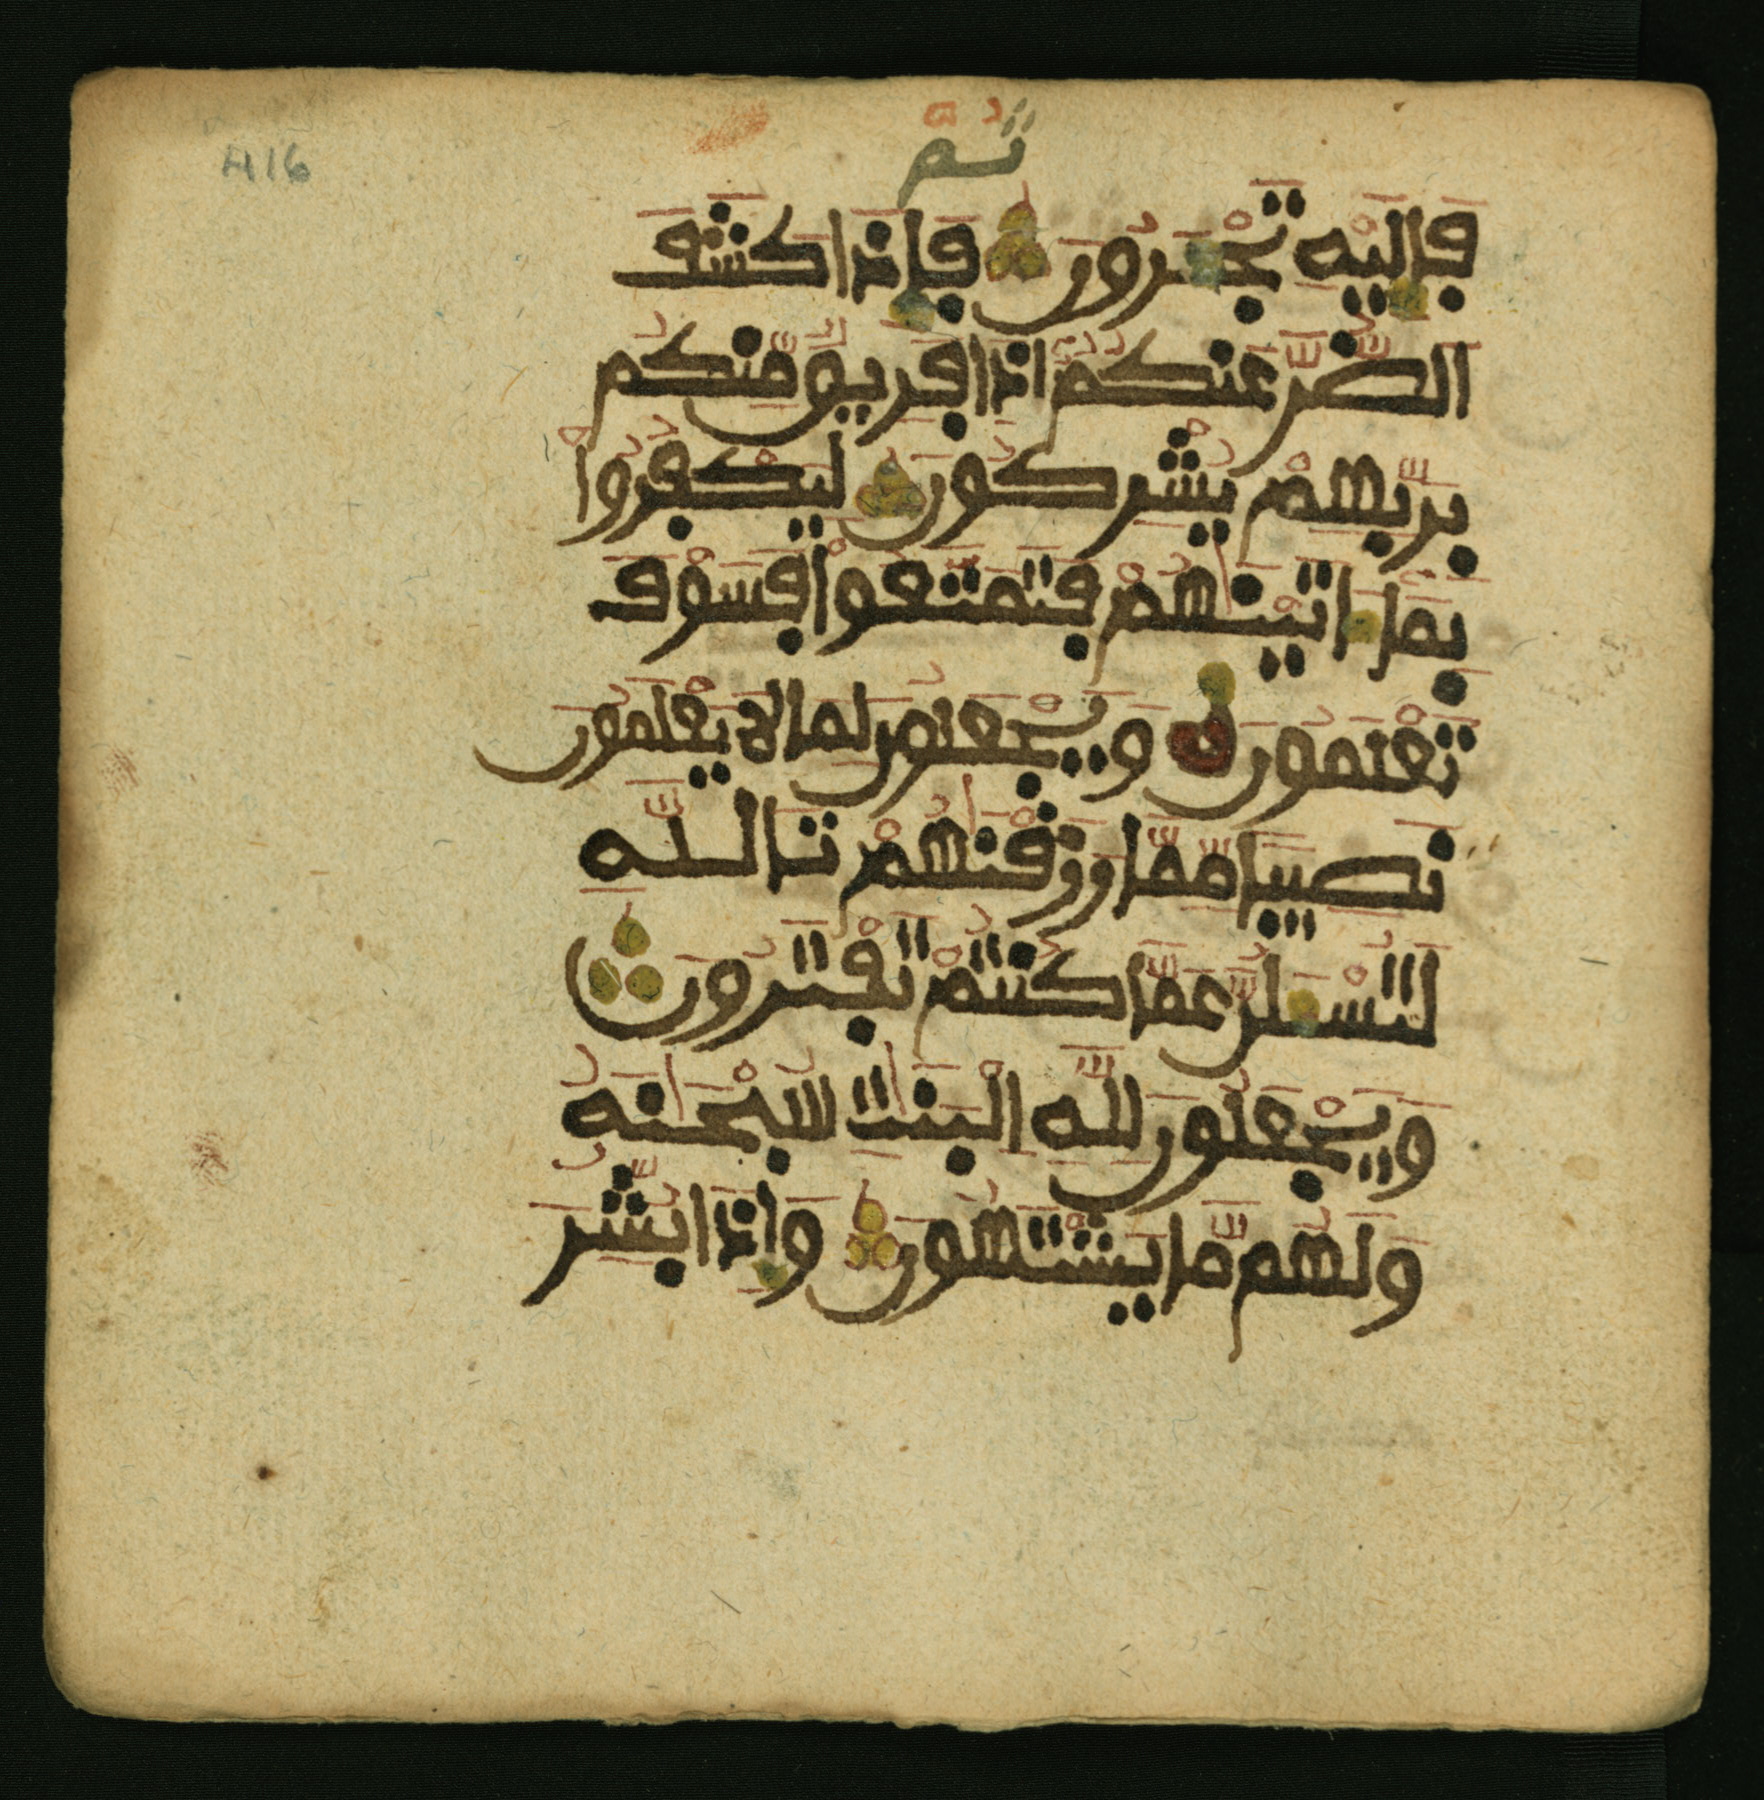 416
ثم
فإليه تجـٔرون فإذا كشف
الضر عنكم إذا فريق منكم
بربهم يشركون ليكفروا
بما ءاتينهم فتمتعوا فسوف
تعلمون ويجعلون لما لا يعلمون
نصيبا مما رزقنهم تالله
لتسـٔلن عما كنتم تفترون
ويجعلون لله البنت سبحنه
ولهم ما يشتهون وإذا بشر